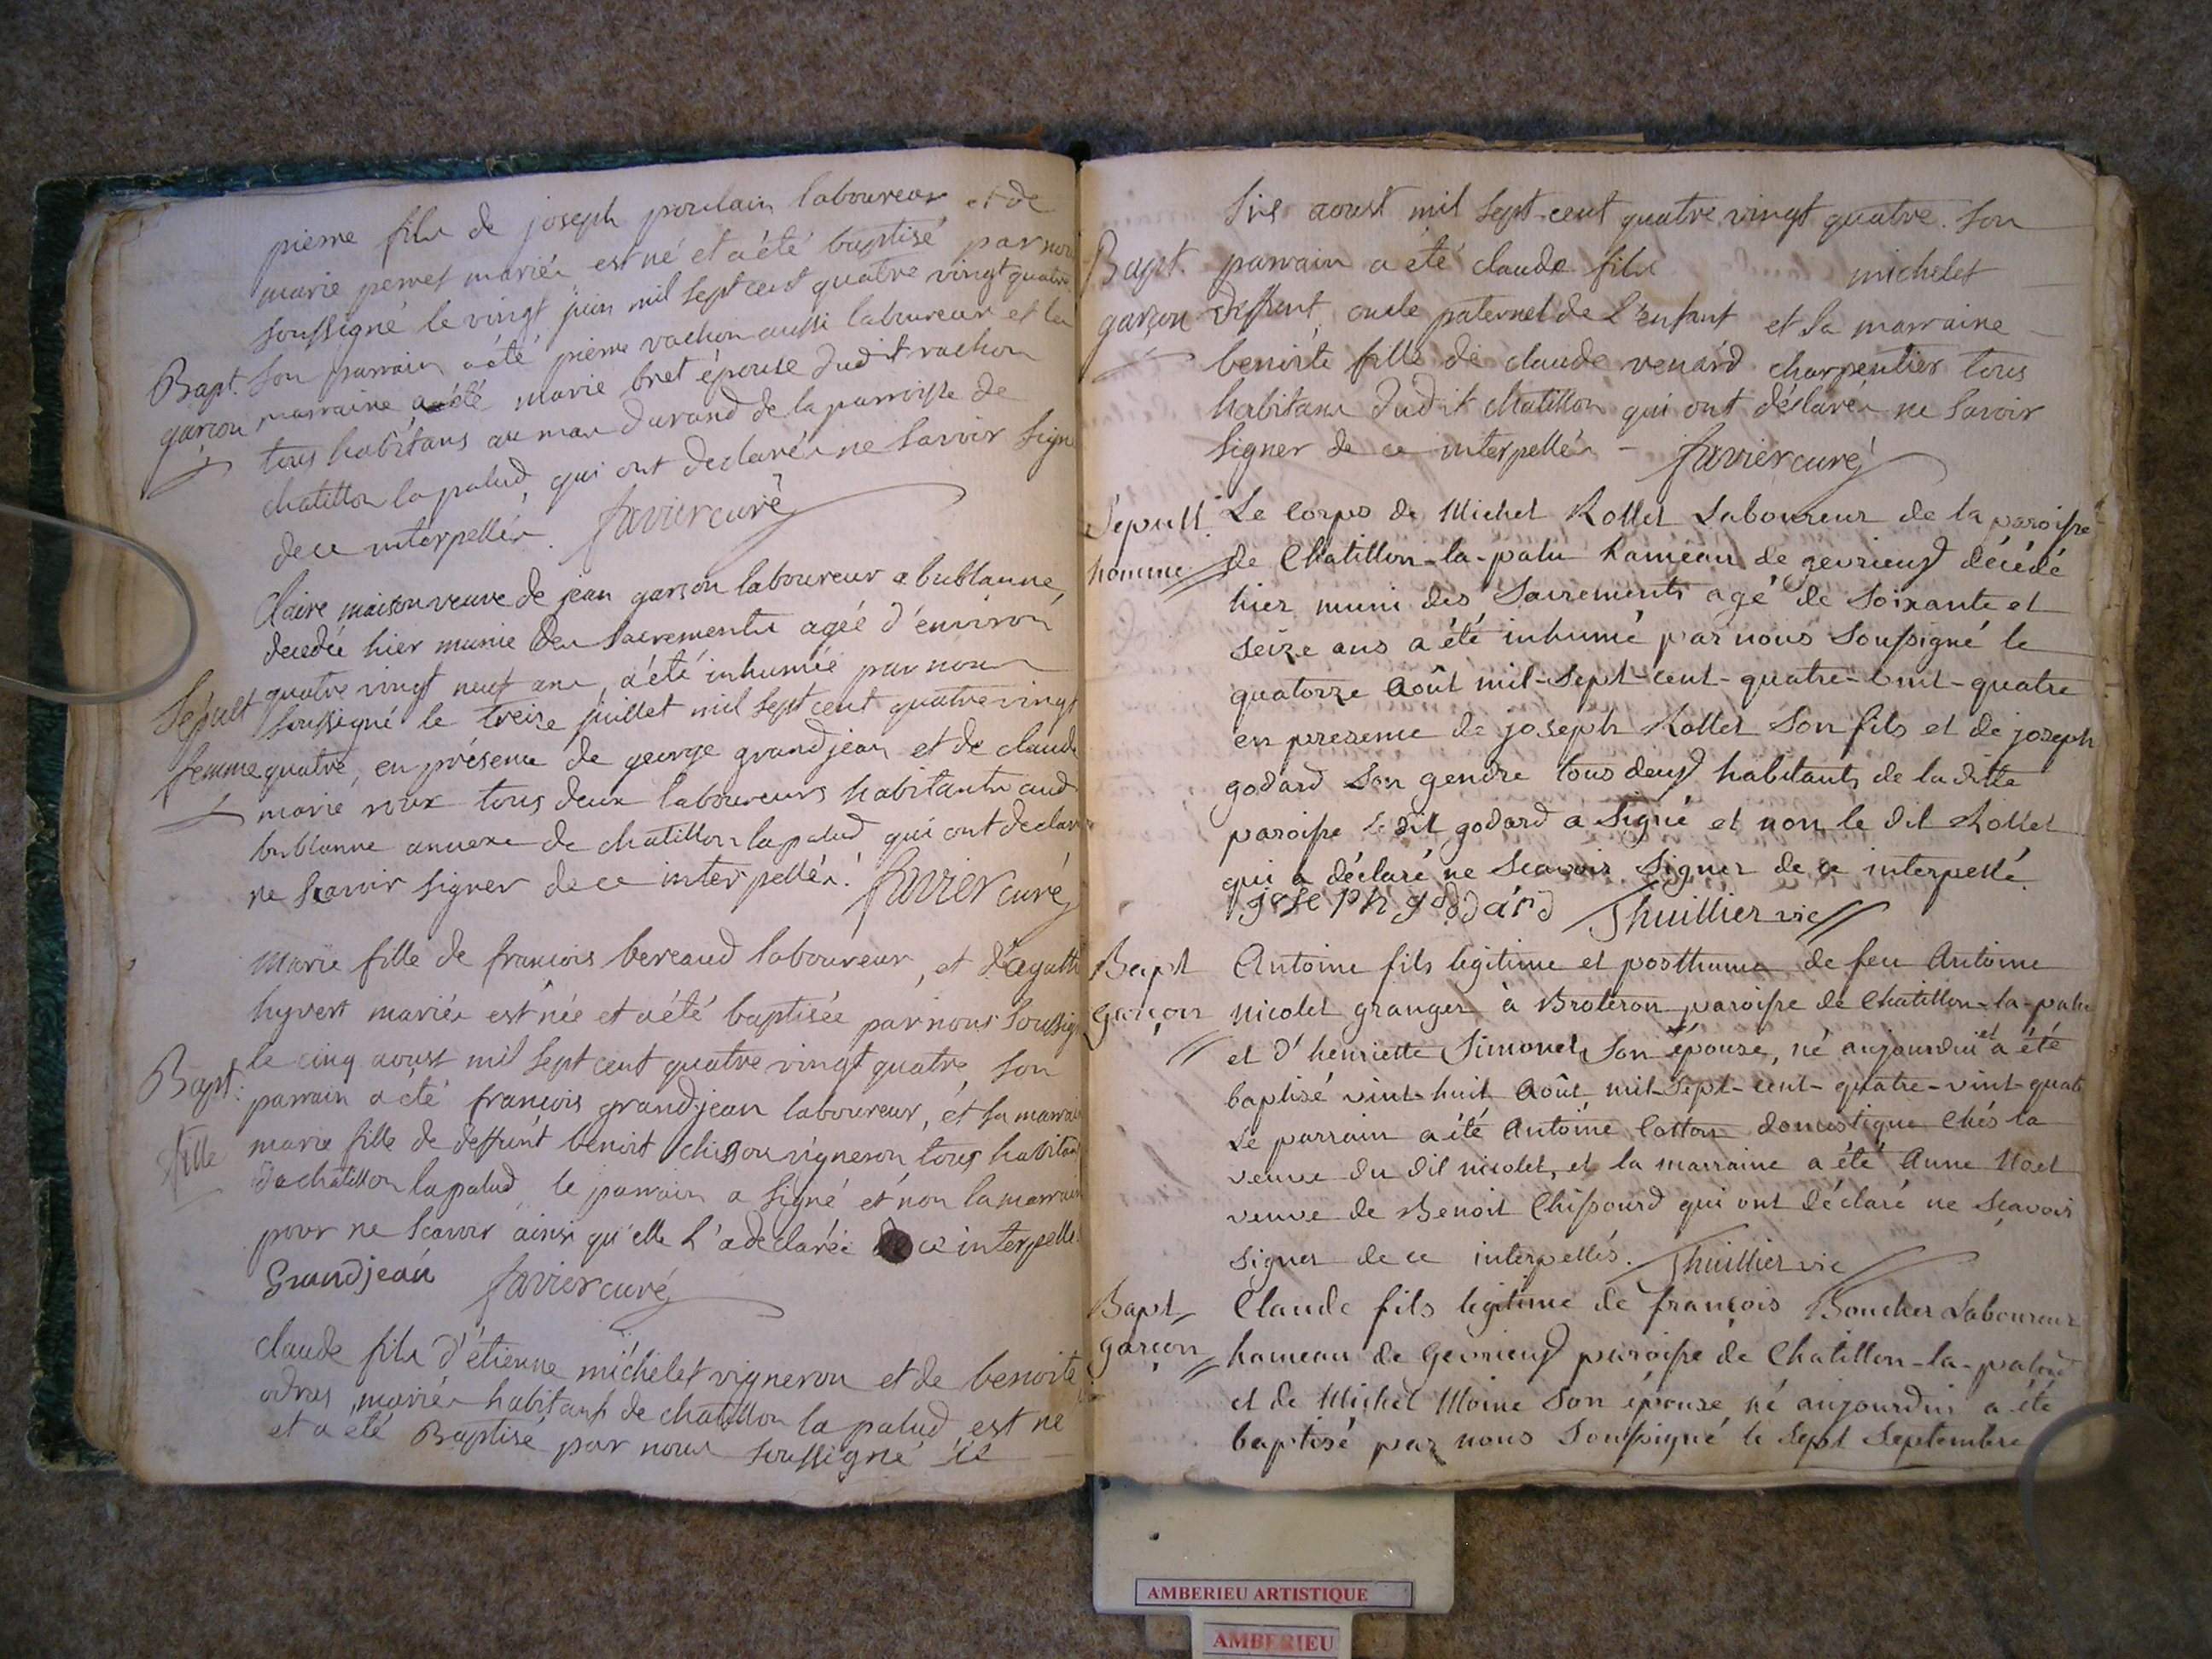 pierre fils de joseph poulain laboureur et de
marie perret mariés est né et a été baptisé par nous
soussigné le vingt juin mil sept cent quatre vingt quatre
Bapt. son parrain a été pierre vachon aussi laboureur et la
garçon marraine a été marie bret épouse dudit vachon
tous habitans au mas durand de la parroisse de
chatillon la palud, qui ont declarés ne savoir signer
de ce interpellés. favier curé
Claire maison veuve de jean garson laboureur a bublanne,
decedée hier munie des sacrements agéé d'environ
Sepult quatre vingt neuf ans, a été inhumée par nous
soussigné le treize juillet mil sept cent quatre vingt
femme quatre, en présence de george grandjean et de claude
marie roux tous deux laboureurs habitants aud
bublanne annexe de chatillon la palud qui ont declaré
ne scavoir signer de ce interpellés. favier curé
Marie fille de françois bereaud laboureur, et d'agathe
hyvert mariés est née et a été baptisée par nous soussigné
le cinq aoust mil sept cent quatre vingt quatre, son
Bapt: parrain a été françois grandjean laboureur, et sa marraine
fille marie fille de deffunt benoit chison vigneron tous habitans
de chatillon lapalud, le parrain a signé et non la marraine
pour ne scavoir ainsi qu'elle l'a declarée de ce interpellé.
Grandjean favier curé
claude fils d'étienne michelet vigneron et de benoite
odras, mariés habitants de chatillon la palud, est né
et a été Baptisé par nous soussigné le
six aoust mil sept-cent quatre vingt quatre. son
Bapt. parrain a été claude fils michelet
garçon deffunt, oncle paternel de l'enfant et sa marraine
benoite fille de claude venard charpentier tous
habitans dudit chatillon qui ont déclarés ne savoir
signer de ce interpellés - favier curé
Sépult. Le corps de Michel Rollet Laboureur de la paroisse
homme de Chatillon-la-palu hameau de gevrieux décédé
hier muni des Sacrements agé de Soixante et
seize ans a été inhumé par nous Soussigné le
quatorze Août mil-sept-cent-quatre-vint-quatre
en presence de joseph Rollet Son fils et de joseph
godard Son gendre tous deux habitants de la ditte
paroisse le dit godard a Signé et non le dit Rollet
qui a déclaré ne Scavoir Signer de ce interpellé.
joseph goddard Thuillier vic
Bapt Antoine fils legitime et posthume de feu Antoine
garçon nicolet granger à Broteron paroisse de Chatillon-la-palu
et d'henriette Simonet Son épouse, né aujourdui et a été
baptisé vint-huit Août mil-sept-cent-quatre-vint-quatre
Le parrain a été Antoine Cotton domestique chés la
veuve du dit nicolet, et la marraine a été Anne Noel
veuve de Benoit Chissourd qui ont déclaré ne Sçavoir
signer de ce interpellés. Thuillier vic
Bapt Claude fils legitime de françois Boucher Laboureur
garçon hameau de Gevrieux paroisse de Chatillon-la-palud
et de Michel Moine Son épouse né aujourdui a été
baptisé par nous Soussigné le Sept Septembre
AMBERIEU ARTISTIQUE
AMBERIEU